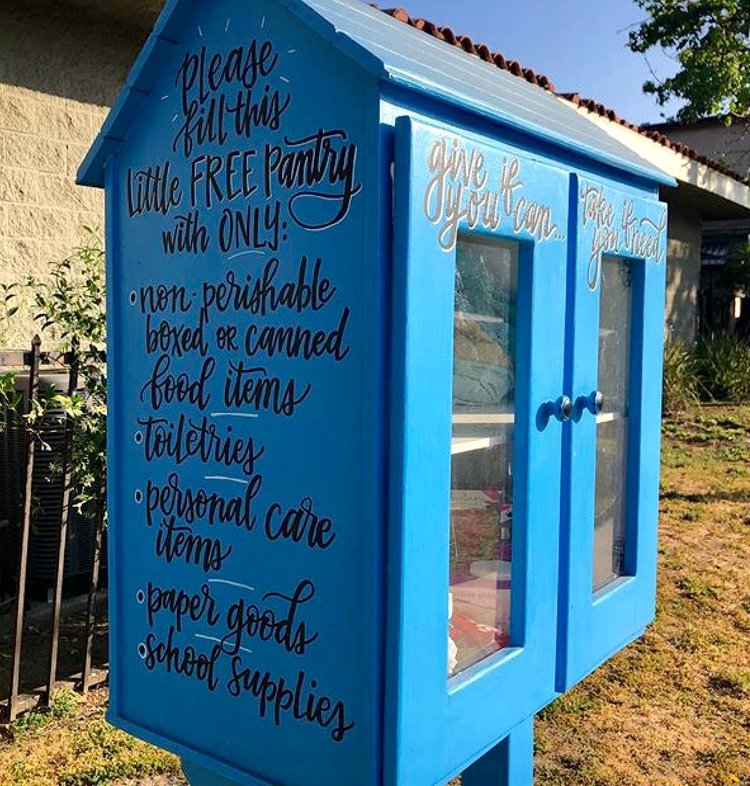 please
fill this
little FREE pantry
with ONLY:
non-perishable
boxed OR canned
food items
toiletries
personal care
items
paper goods
school supplies
give if
you can...
take if
you need